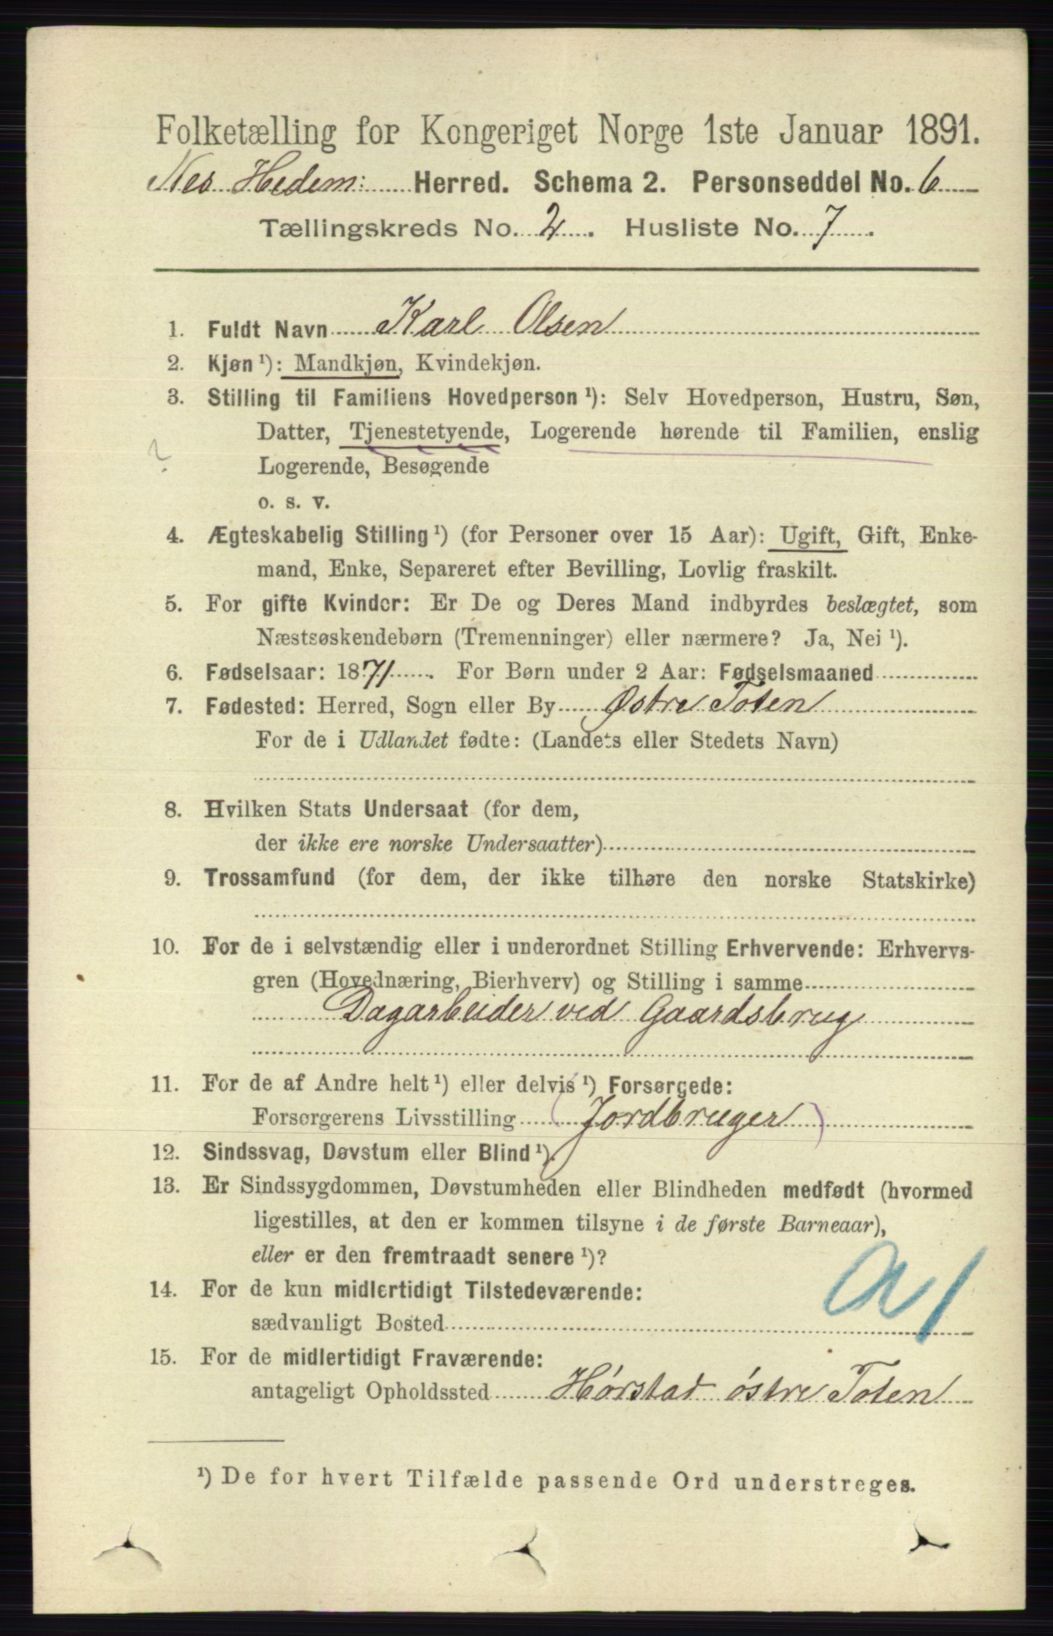 Folketælling for Kongeriget Norge 1ste Januar 1891.
Nes Hedem: Herred. Schema 2. Personseddel No. 6
Tællingskreds No. 2. Husliste No. 7.
1. Fuldt Navn Karl Olsen
2. Kjøn ¹): Mandkjøn, Kvindekjøn.
3. Stilling til Familiens Hovedperson ¹): Selv Hovedperson, Hustru, Søn,
Datter, Tjenestetyende, Logerende hørende til Familien, enslig
? Logerende, Besøgende
o. s. v.
4. Ægteskabelig Stilling ¹) (for Personer over 15 Aar): Ugift, Gift, Enke-
mand, Enke, Separeret efter Bevilling, Lovlig fraskilt.
5. For gifte Kvinder: Er De og Deres Mand indbyrdes beslægtet, som
Næstsøskendebørn (Tremenninger) eller nærmere? Ja, Nei ¹).
6. Fødselsaar: 1871. For Børn under 2 Aar: Fødselsmaaned
7. Fødested: Herred, Sogn eller By Østre Toten
For de i Udlandet fødte: (Landets eller Stedets Navn)
8. Hvilken Stats Undersaat (for dem,
der ikke ere norske Undersaatter)
9. Trossamfund (for dem, der ikke tilhøre den norske Statskirke)
10. For de i selvstændig eller i underordnet Stilling Erhvervende: Erhvervs-
gren (Hovednæring, Bierhverv) og Stilling i samme
Dagarbeider ved Gaardsbrug
11. For de af Andre helt ¹) eller delvis ¹) Forsørgede:
Forsørgerens Livsstilling (Jordbruger)
12. Sindssvag, Døvstum eller Blind ¹).
13. Er Sindssygdommen, Døvstumheden eller Blindheden medfødt (hvormed
ligestilles, at den er kommen tilsyne i de første Barneaar),
eller er den fremtraadt senere ¹)?
14. For de kun midlertidigt Tilstedeværende:
sædvanligt Bosted
15. For de midlertidigt Fraværende:
antageligt Opholdssted Hørstad østre Toten
¹) De for hvert Tilfælde passende Ord understreges.